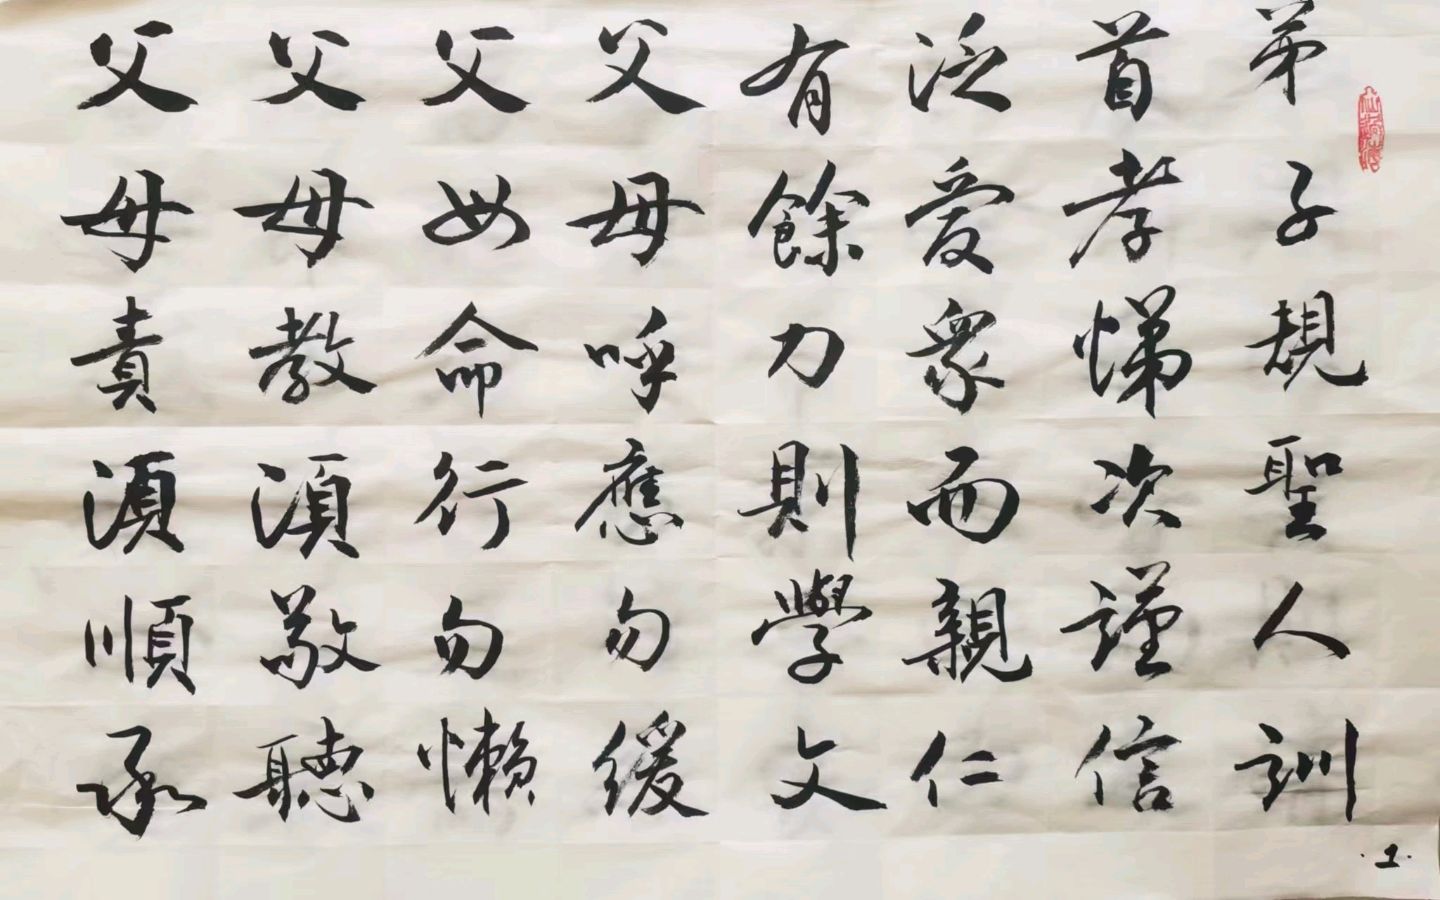 弟子規聖人訓
首孝悌次謹信
泛愛眾而親仁
有餘力則學文
父母呼應勿緩
父母命行勿懶
父母教須敬聽
父母責須順承
·1·